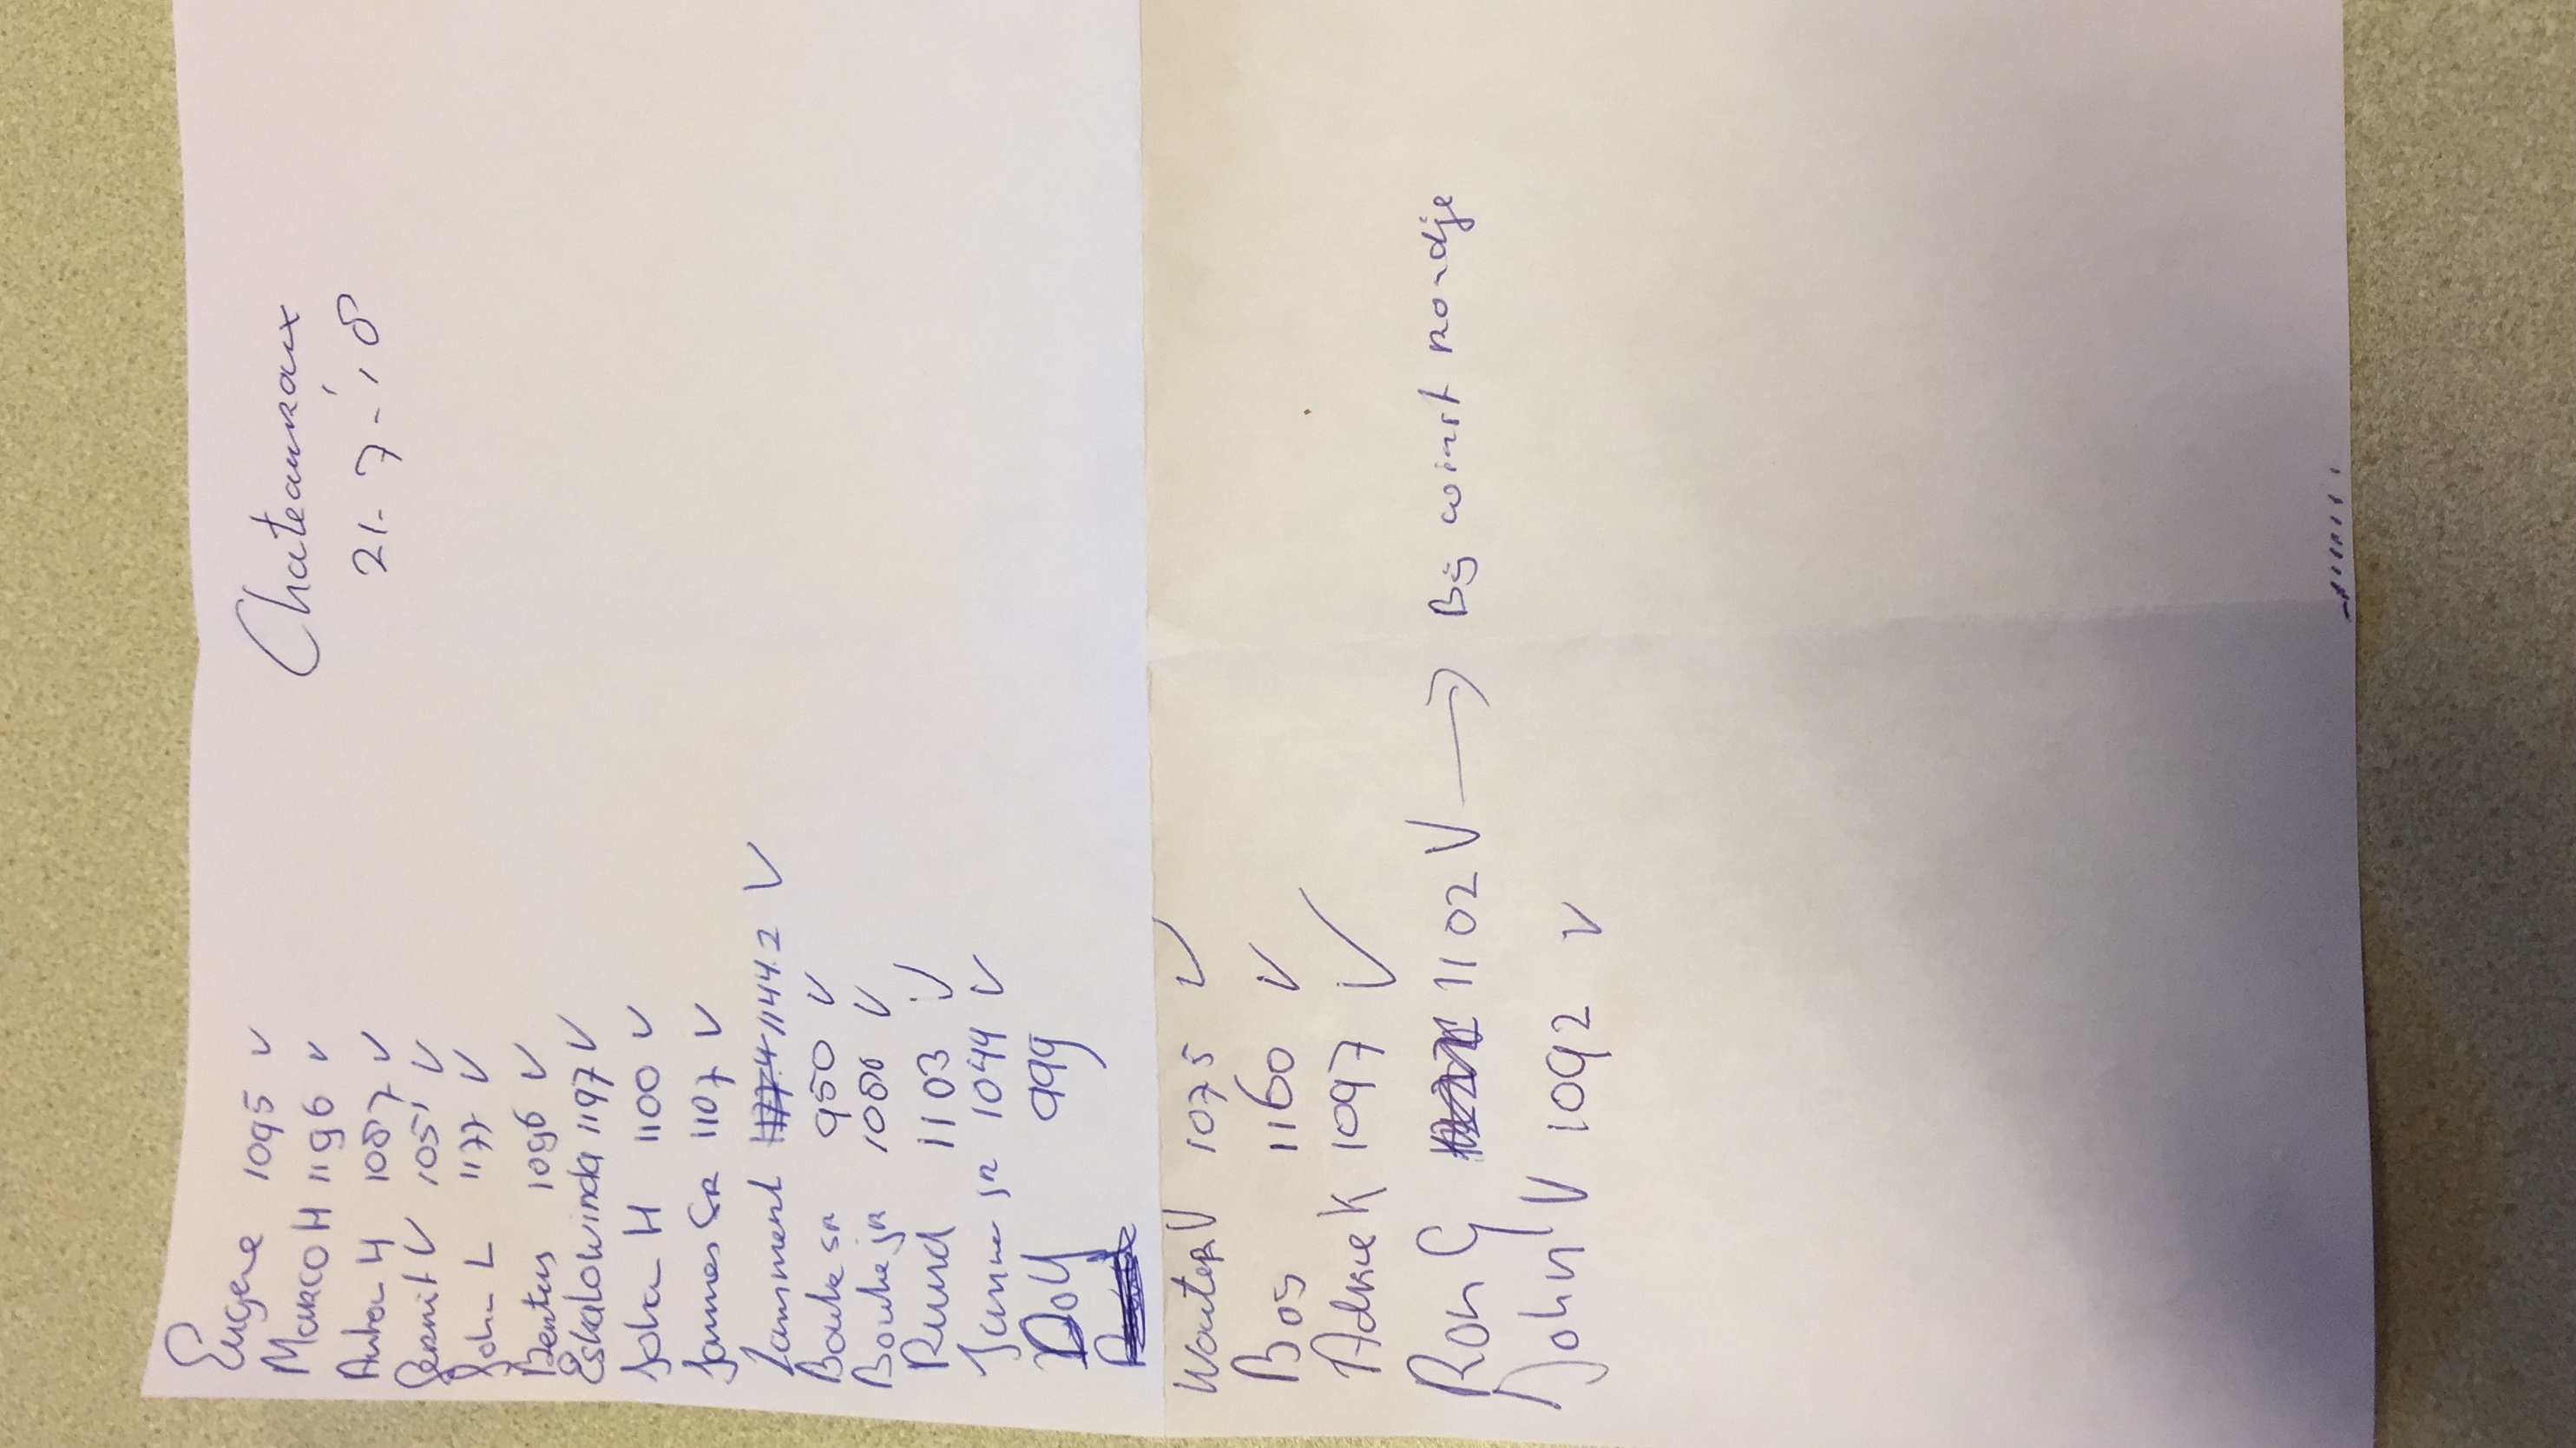 Chateauraux
21-7-'18
Eugene 1095 V
Marco H 1196 V
Anton H 1087 V
Gerrit V 1051 V
John L 1177 V
Bentus 1096 V
Eskalowinda 1197 V
John H 1100 V
James SR 1107 V
1144.2 V
Bouke sr 950 V
Bouke jr 1080 V
Ruud 1103 V
jr 1044 V
Dolf 999
Wouter V 1075 V
Bas 1160 V
Adrie K 1097 V
Ron G 1102 V → Bij winst rondje
John V 1092 V